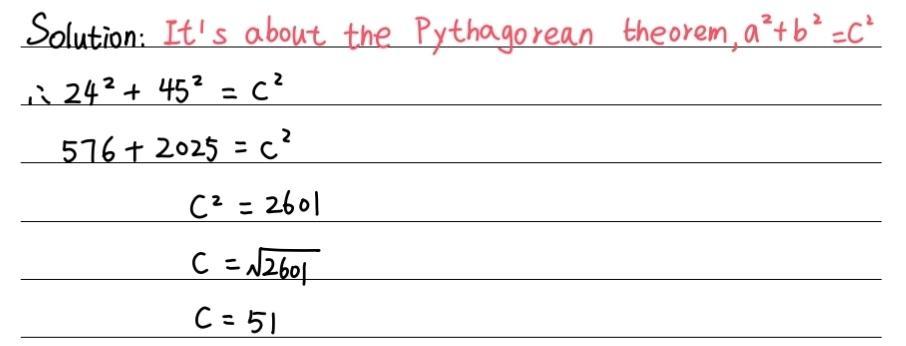 Solution: It's about the Pythagorean theorem, a²+b²=c²
∴ 24² + 45² = c²
576 + 2025 = c²
c² = 2601
c = √2601
c = 51